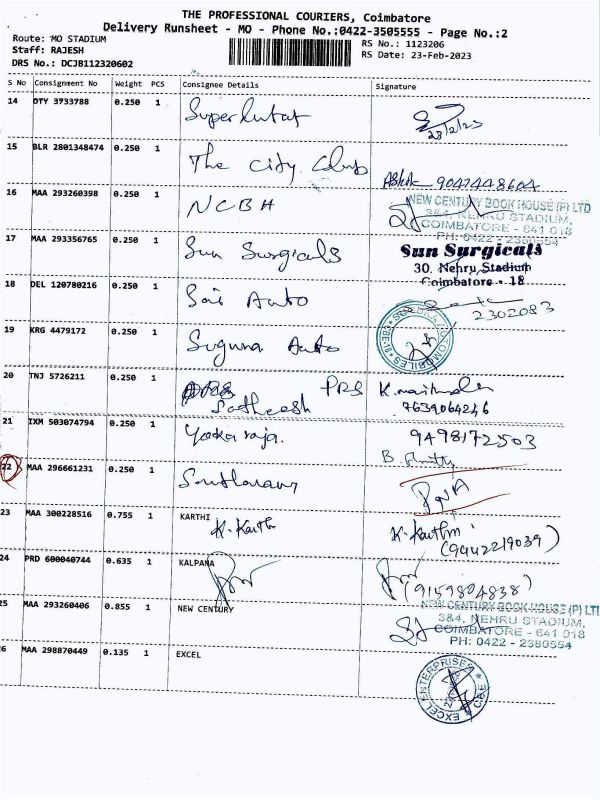 THE PROFESSIONAL COURIERS, Coimbatore
Delivery Runsheet - MO - Phone No.:0422-3505555 - Page No.:2
Route: MO STADIUM
Staff: RAJESH
DRS No.: DCJB112320602
RS No.: 1123206
RS Date: 23-Feb-2023
S No Consignment No Weight PCS Consignee Details Signature
14 DTY 3733788 0.250 1
23/2/23
15 BLR 2801348474 0.250 1 The City Club
9047448604
16 MAA 293260398 0.250 1 NCBH
NEW CENTURY BOOK HOUSE (P) LTD
3&4, NEHRU STADIUM,
COIMBATORE - 641 018
PH: 0422 - 2380554
17 MAA 293356765 0.250 1 Sun Surgicals
Sun Surgicals
30, Nehru Stadium
Coimbatore - 18
18 DEL 120780216 0.250 1 Sai Auto
2302083
19 KRG 4479172 0.250 1 Suguna Auto
20 TNJ 5726211 0.250 1 PRS
Satheesh
7639064246
21 IXM 503074794 0.250 1
9498172503
22 MAA 296661231 0.250 1
23 MAA 300228516 0.755 1 KARTHI
K. Karthi
(9442219039)
24 PRD 600040744 0.635 1 KALPANA
(9159804838)
25 MAA 293260406 0.855 1 NEW CENTURY
NEW CENTURY BOOK HOUSE (P) LTD
3&4, NEHRU STADIUM,
COIMBATORE - 641 018
PH: 0422 - 2380554
26 MAA 298870449 0.135 1 EXCEL
EXCEL ENTERPRISES CBE